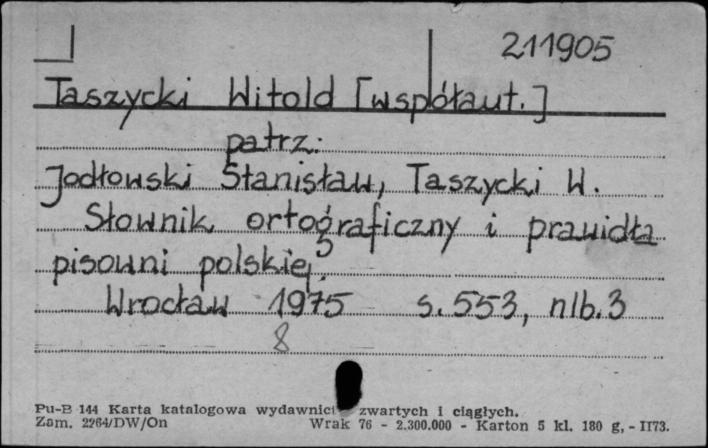 211905
Taszycki Witold [współaut.]
patrz:
Jodłowski Stanisław, Taszycki W.
Słownik ortograficzny i prawidła
pisowni polskiej.
5
Wrocław 1975 s. 553, nlb. 3
8
Pu-B 144 Karta katalogowa wydawnict zwartych i ciągłych.
Zam. 2264/DW/On Wrak 76 - 2.300.000 - Karton 5 kl. 180 g, - II73.